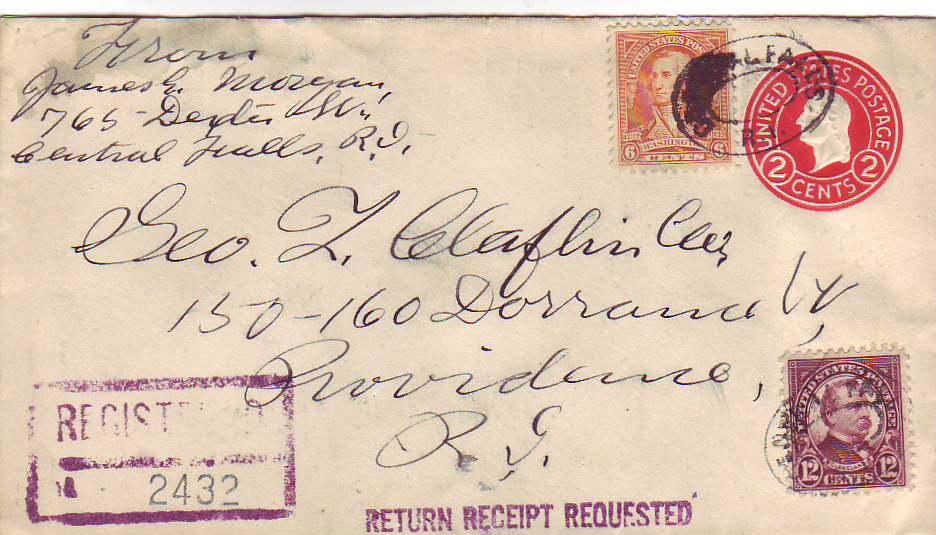 From
James E. Morgan,
765 Dexter St.,
Central Falls, R.I.
UNITED STATES POSTAGE
6 WASHINGTON 6
CENTRAL FALLS
R.I.
UNITED STATES POSTAGE
2 CENTS 2
Geo. L. Claflin Co.,
150-160 Dorrance St,
Providence,
R.I.
UNITED STATES POSTAGE
CLEVELAND
12 CENTS 12
REGISTERED
2432
RETURN RECEIPT REQUESTED